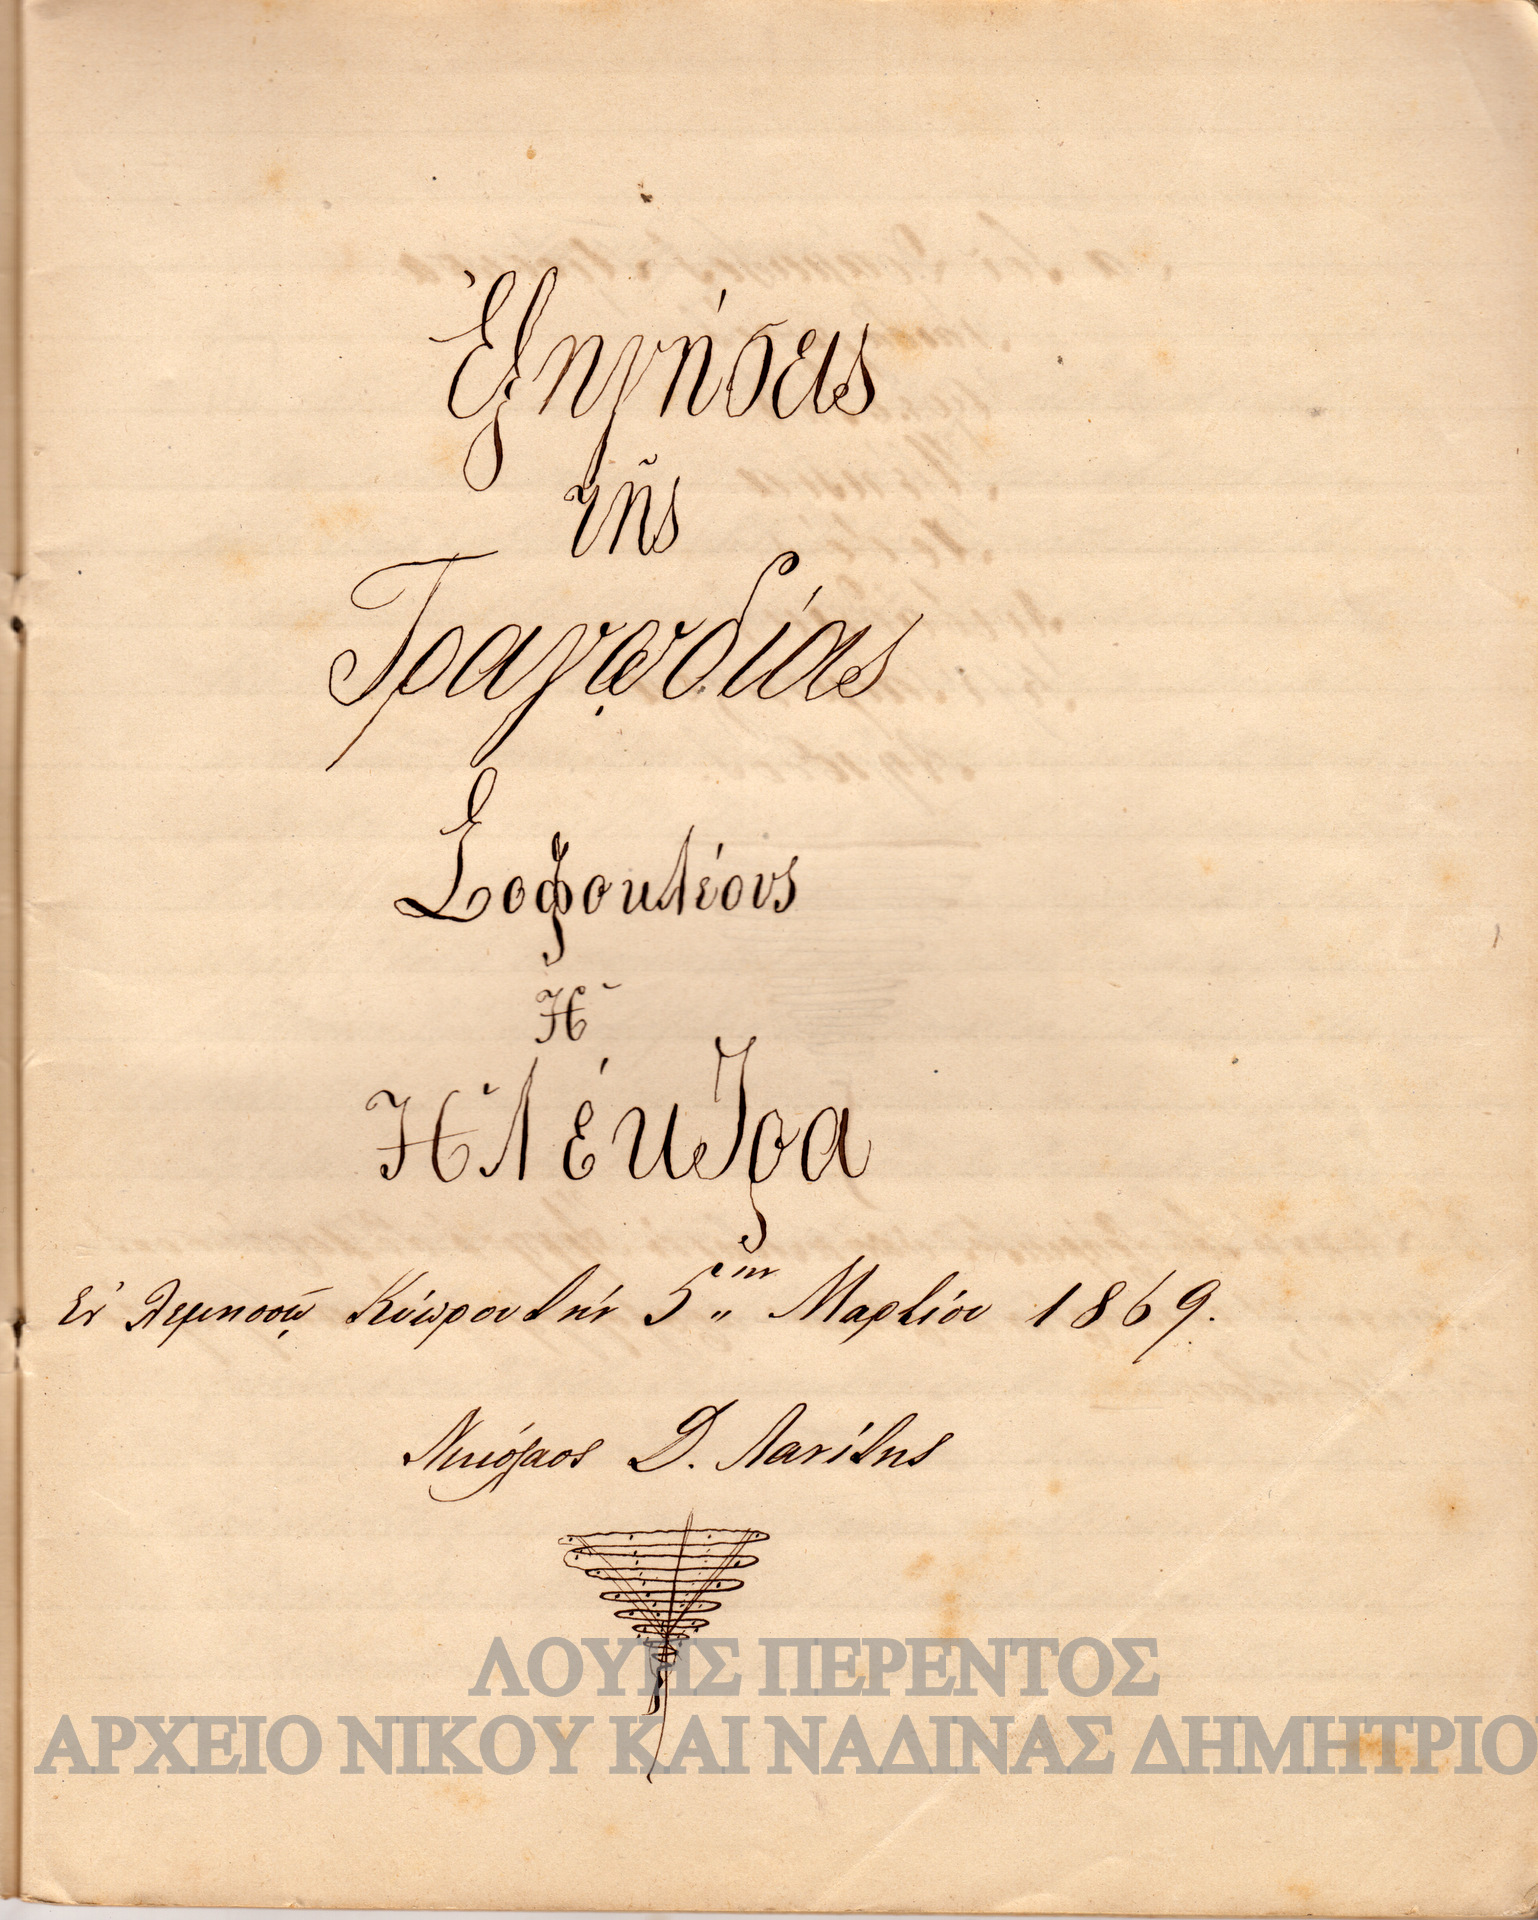 Ἐξηγήσεις
τῆς
Τραγῳδίας
Σοφοκλέους
Ἡ
Ἠλέκτρα
Ἐν Λεμησσῷ Κύπρου τήν 5ην Μαρτίου 1869.
Νικόλαος Δ. Λανίτης
ΛΟΥΗΣ ΠΕΡΕΝΤΟΣ
ΑΡΧΕΙΟ ΝΙΚΟΥ ΚΑΙ ΝΑΔΙΝΑΣ ΔΗΜΗΤΡΙΟ